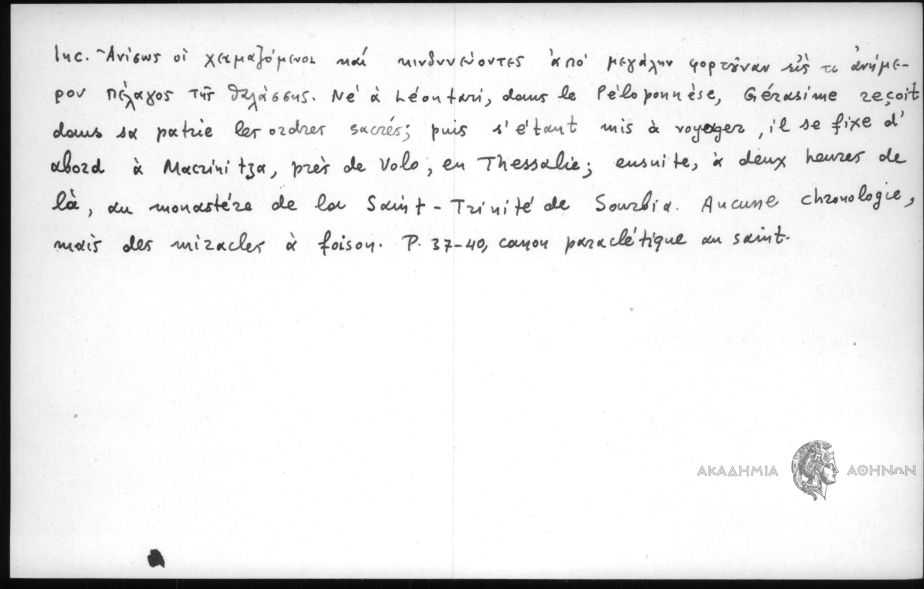 Inc. Ἀνίσως οἱ χειμαζόμενοι καί κινδυνεύοντες ἀπό μεγάλην φορτοῦναν εἰς τὸ ἀνήμε-
ρον πέλαγος τῆς θαλάσσης. Né à Léontari, dans le Péloponnèse, Gérasime reçoit
dans sa patrie les ordres sacrés; puis s'étant mis à voyager, il se fixe d'
abord à Macrinitza, près de Volo, en Thessalie; ensuite, à deux heures de
là, au monastère de la Saint-Trinité de Sourbia. Aucune chronologie,
mais des miracles à foison. P. 37-40, canon paraclétique au saint.
ΑΚΑΔΗΜΙΑ ΑΘΗΝΩΝ